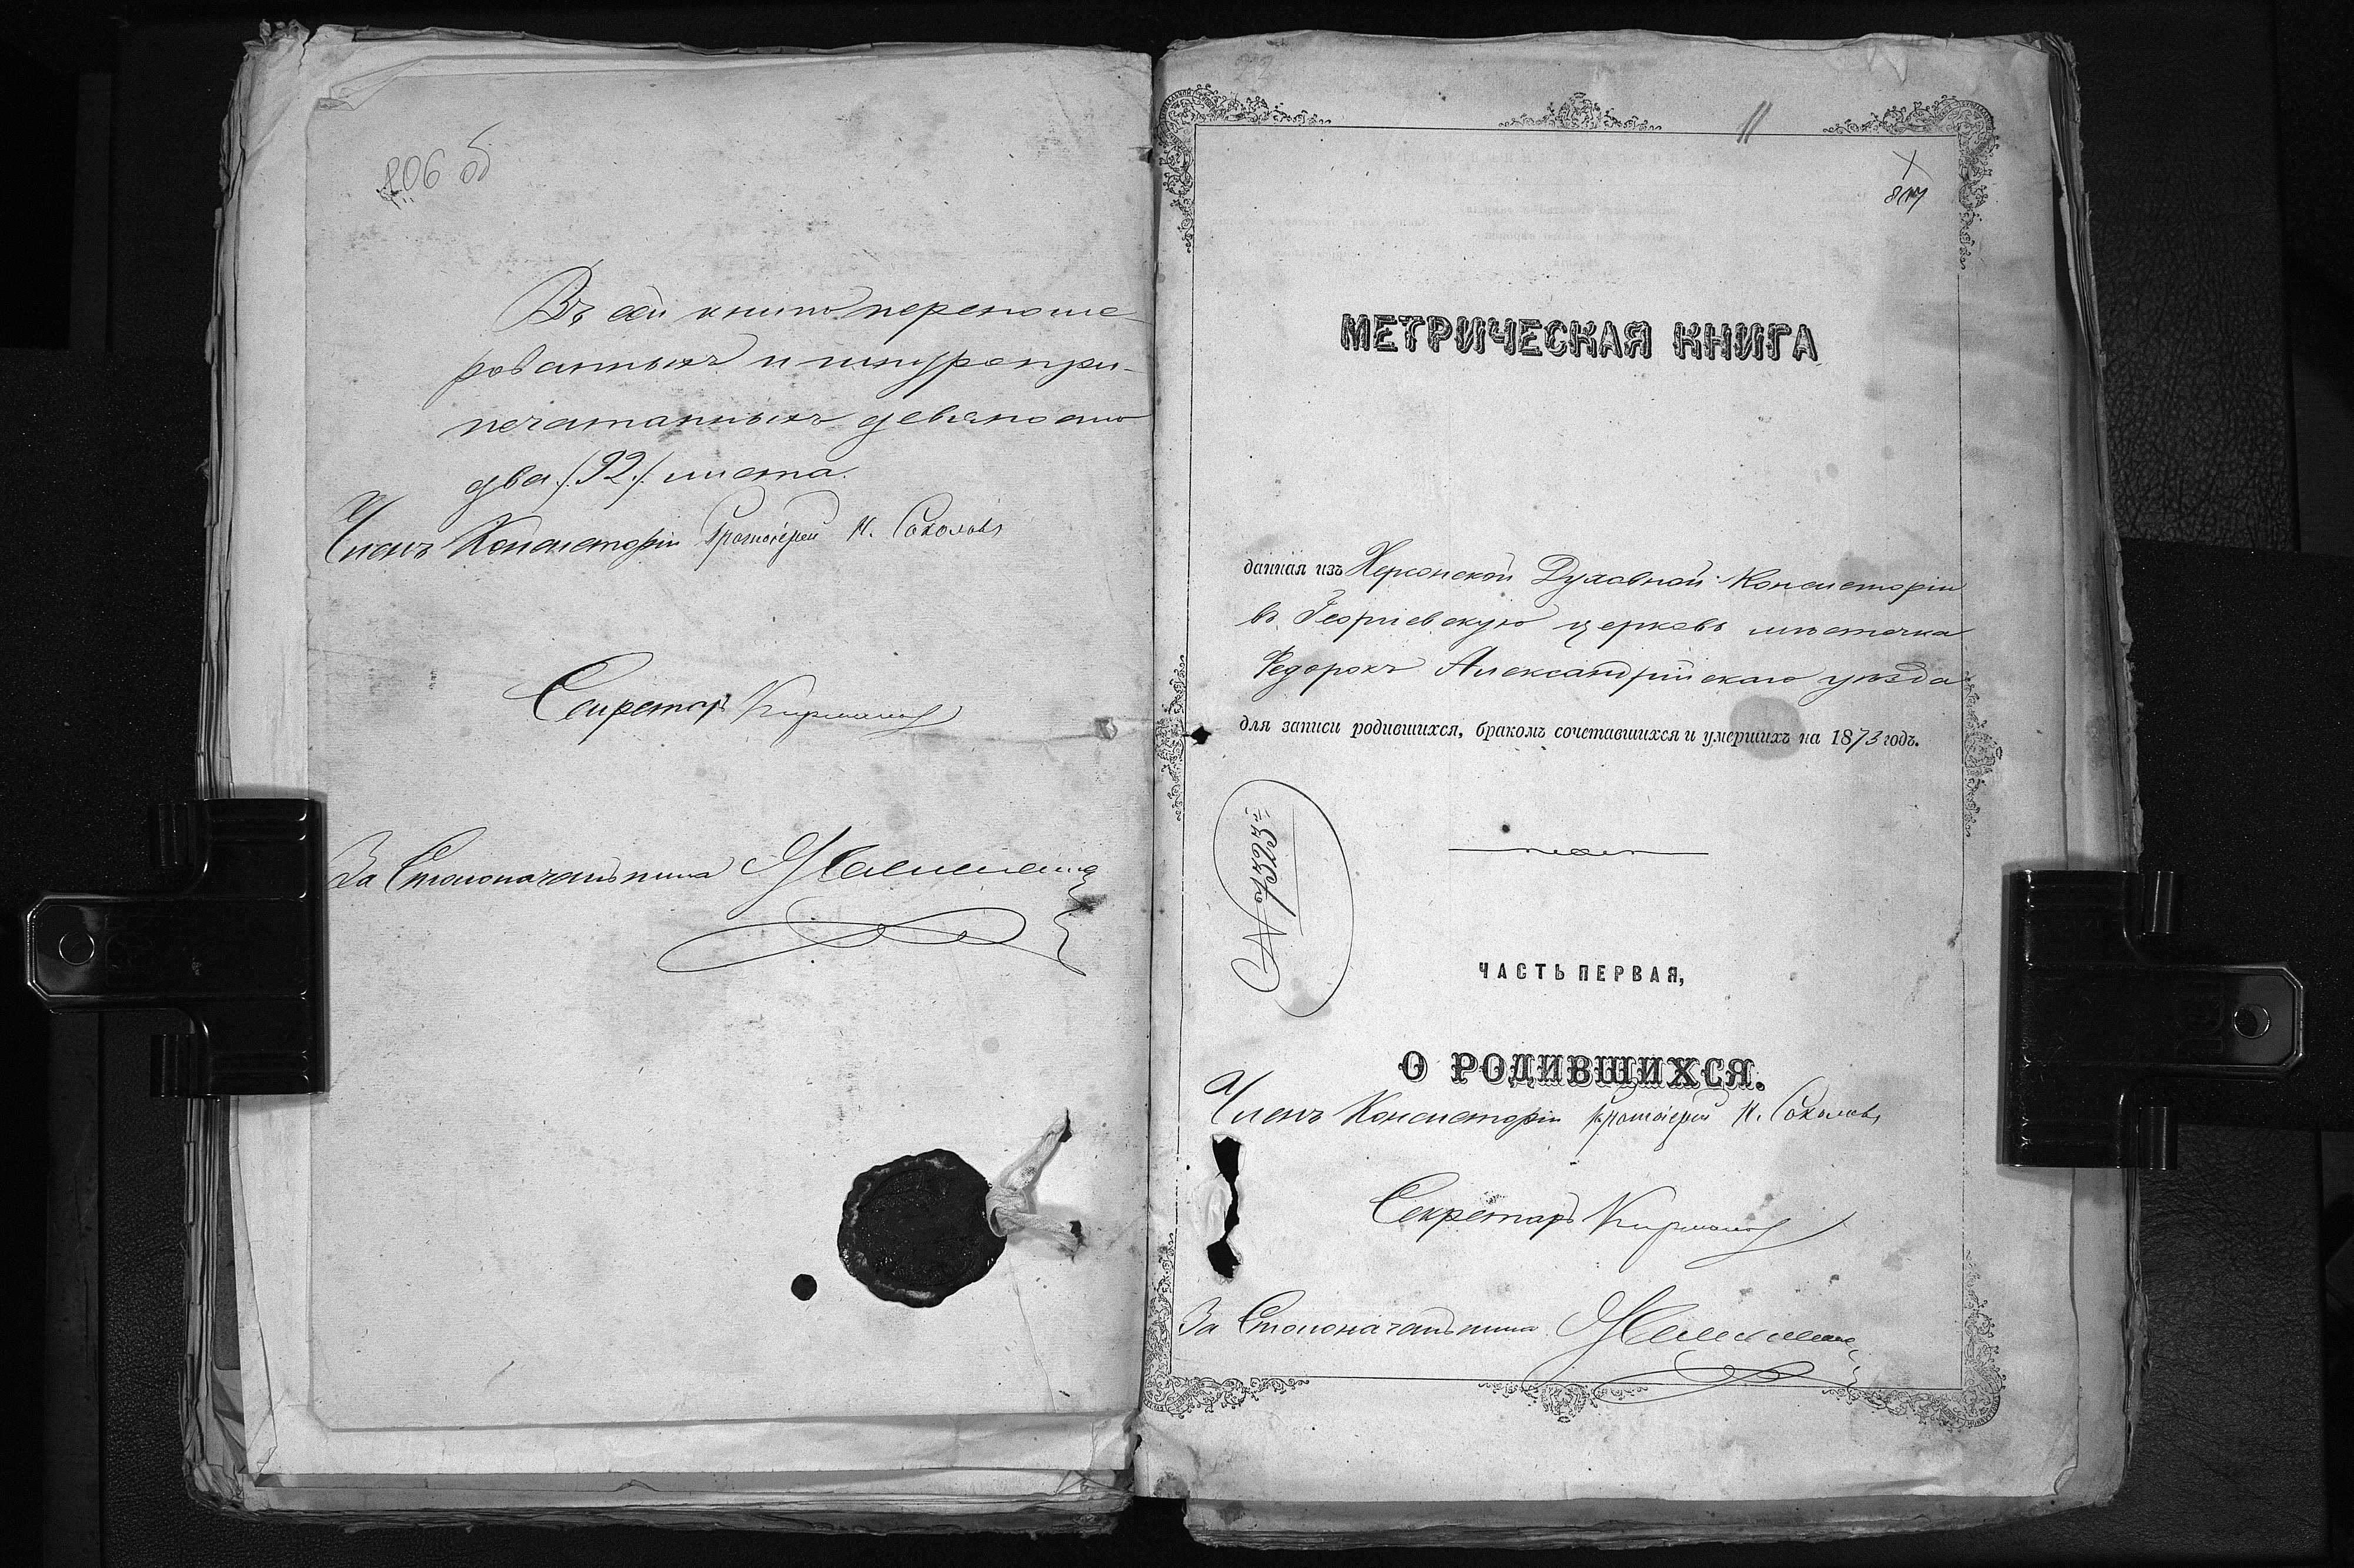 806 об
Въ сей книгѣ перенуме-
рованныхъ и шнуропри-
печатанныхъ девяносто
два /92/ листа.
Членъ Консисторіи Протоіерей Н. Соколовъ
Секретарь
За Столоначальника
11
807
МЕТРИЧЕСКАЯ КНИГА
данная изъ Херсонской Духовной Консисторіи
въ Георгіевскую церковь мѣстечка
Федорокъ Александрійскаго уѣзда
для записи родившихся, бракомъ сочетавшихся и умершихъ на 1873 годъ.
№ 7323
ЧАСТЬ ПЕРВАЯ,
О РОДИВШИХСЯ.
Членъ Консисторіи Протоіерей Н. Соколовъ
Секретарь
За Столоначальника